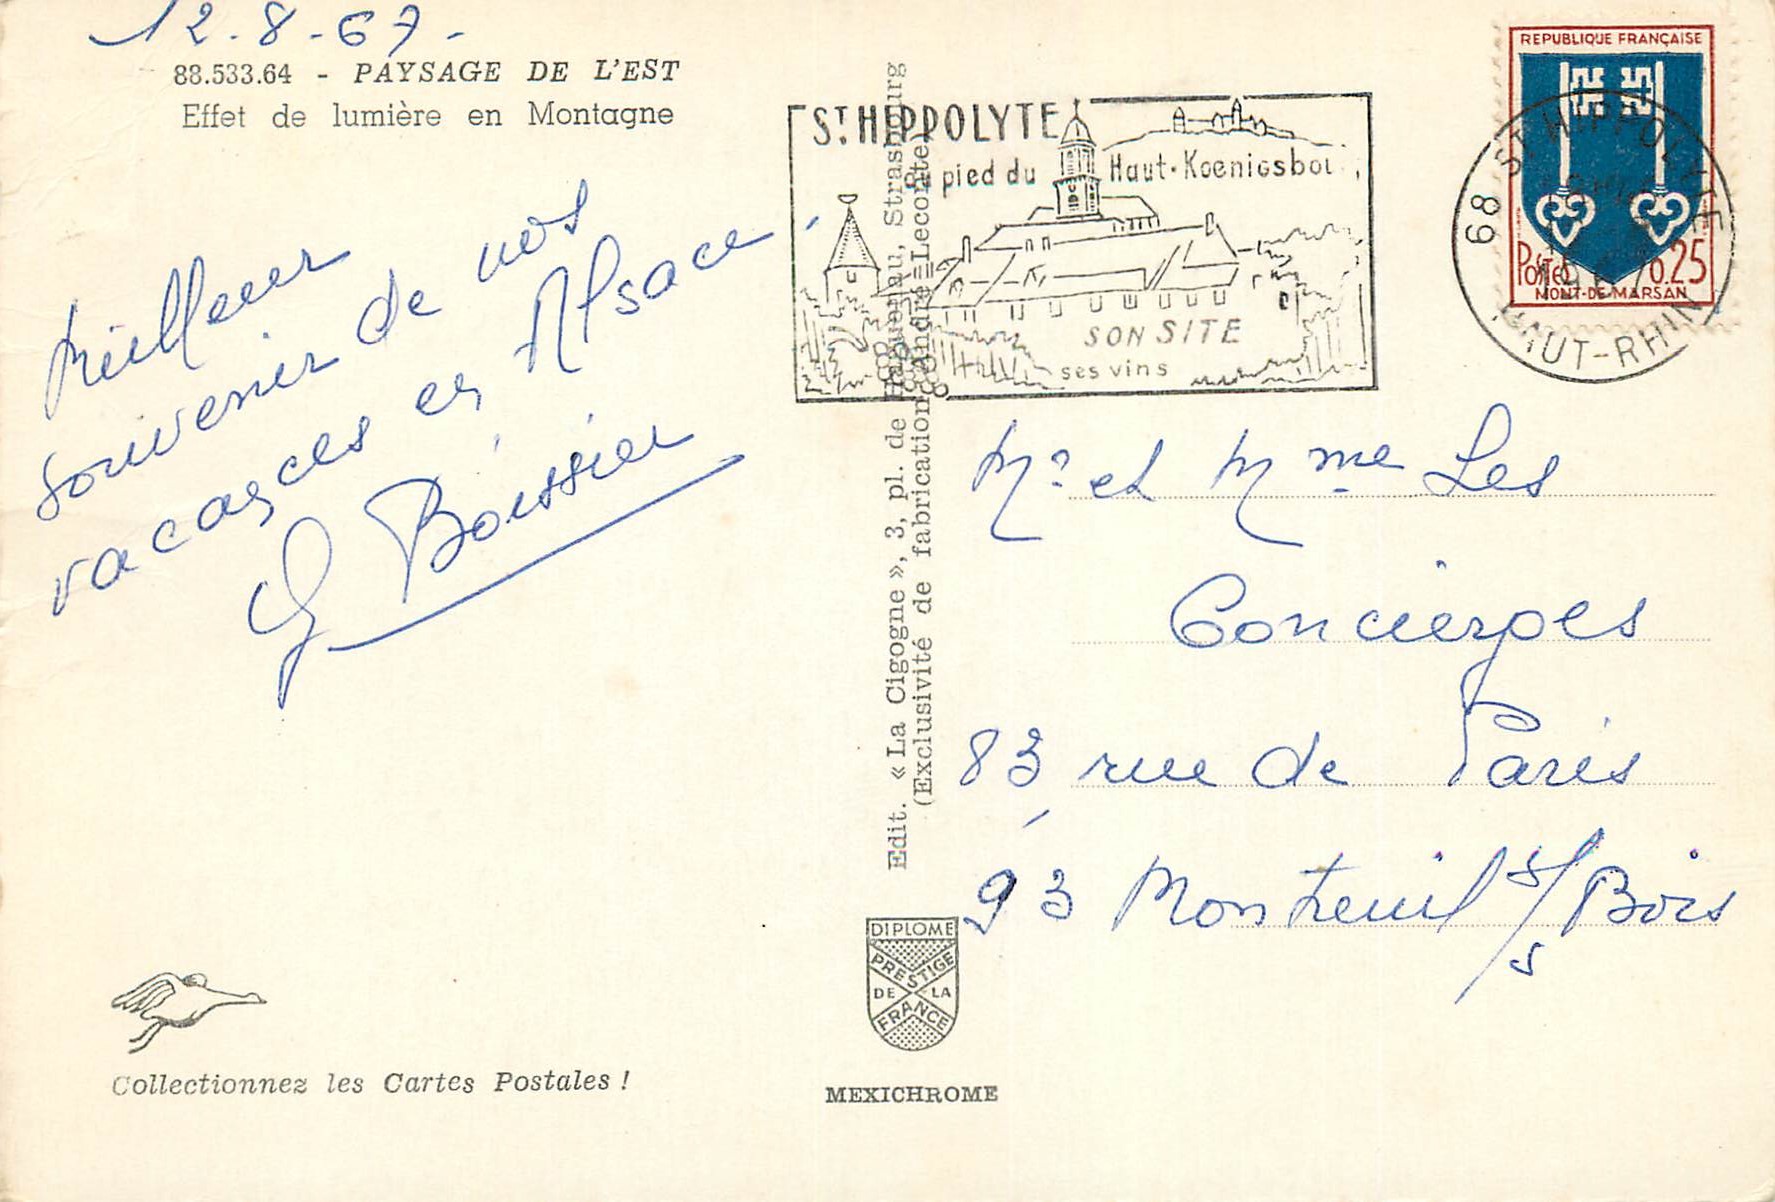 12-8-67-
88.533.64 - PAYSAGE DE L'EST
Effet de lumière en Montagne
Meilleur
souvenir de nos
vacances en Alsace.
G Boissier
Collectionnez les Cartes Postales !
Edit. « La Cigogne », 3, pl. de Haguenau, Strasbourg
(Exclusivité de fabrication André Leconte)
DIPLOME
PRESTIGE
DE LA
FRANCE
MEXICHROME
ST HIPPOLYTE
pied du Haut-Koenigsbo
SON SITE
ses vins
REPUBLIQUE FRANÇAISE
POSTES 0.25
MONT-DE-MARSAN
68 ST HIPPOLYTE
HAUT-RHIN
Mr et Mme Les
Concierges
83 rue de Paris
93 Montreuil s/s Bois